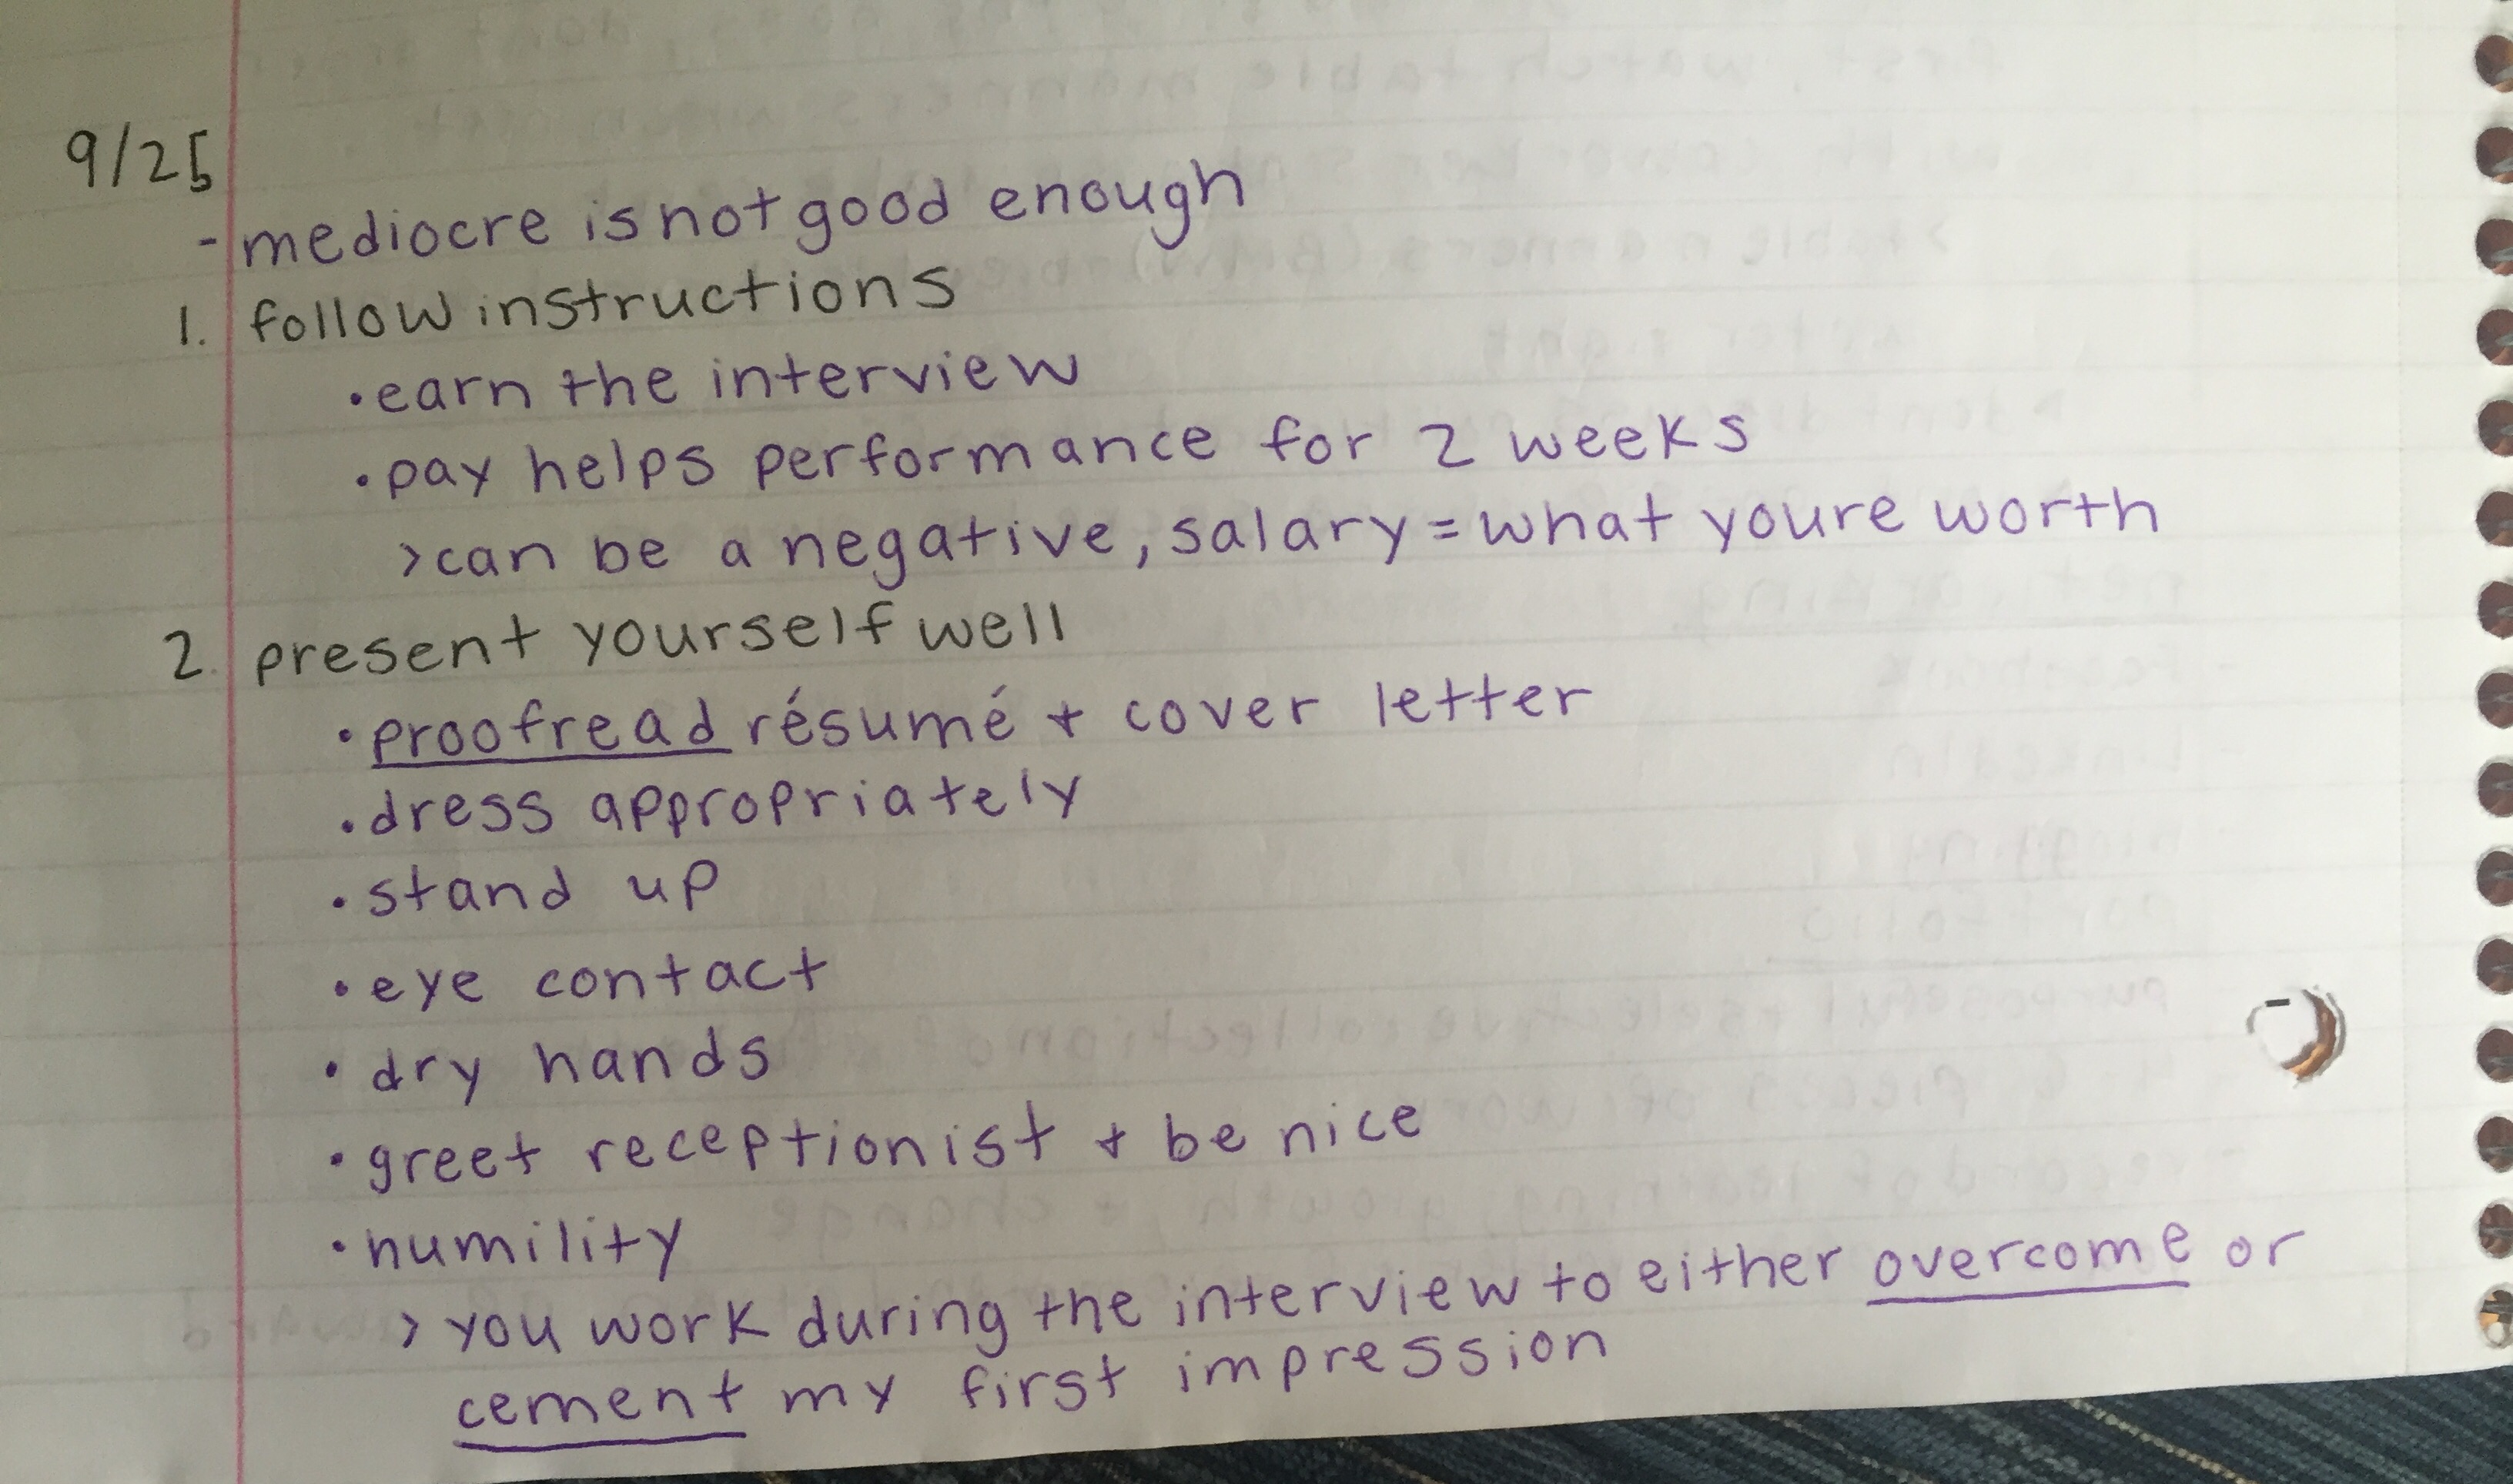 9/25
- mediocre is not good enough
1. follow instructions
• earn the interview
• pay helps performance for 2 weeks
> can be a negative, salary = what youre worth
2. present yourself well
• proofread résumé + cover letter
• dress appropriately
• stand up
• eye contact
• dry hands
• greet receptionist + be nice
• humility
> you work during the interview to either overcome or
cement my first impression